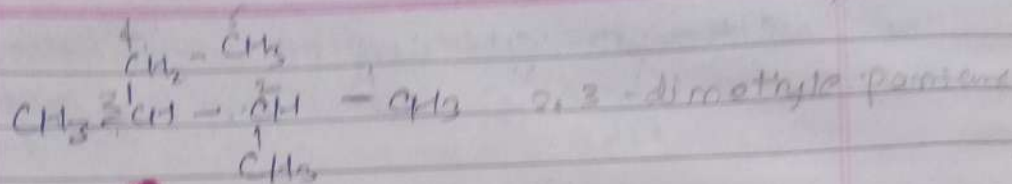 4 5
CH2 - CH3
CH3 3 CH - 2 CH - 1 CH3 2,3-dimethyle pentane
CH3